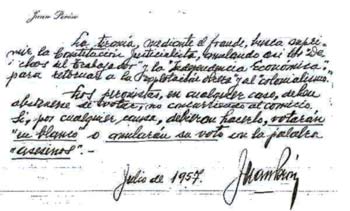 Juan Perón
La tiranía, mediante el fraude, busca supri-
mir la Constitución Justicialista, anulando así los "De
chos del Trabajador" y la "Independencia Económica",
para retornar a la explotación obrera y al colonialismo.
Los peronistas, en cualquier caso, deben
abstenerse de votar, no concurriendo al comicio.
Si, por cualquier causa, debieran hacerlo, votarán
"en blanco" o anularán su voto con la palabra
"asesinos".-
Julio de 1957.